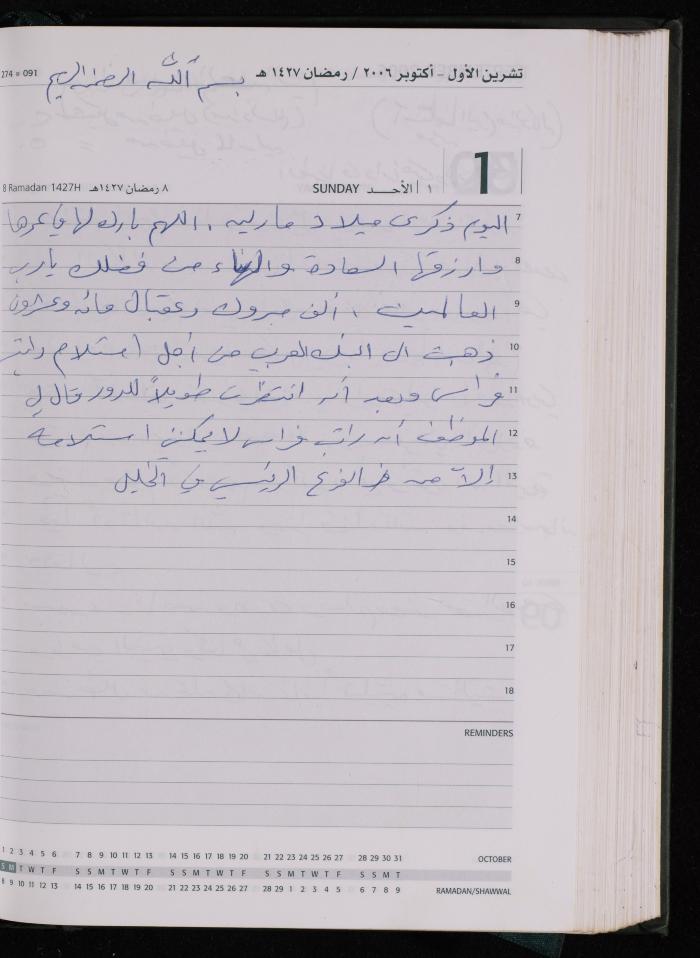 274 = 091
تشرين الأول - أكتوبر ٢٠٠٦ / رمضان ١٤٢٧ هـ
بسم الله الرحمن الرحيم
1
١ | الأحــد SUNDAY
٨ رمضان ١٤٢٧هـ 8 Ramadan 1427H
7 اليوم ذكرى ميلاد ماريه، اللهم بارك لها في عمرها
8 وارزقها السعادة والهناء من فضلك يا رب
9 العالمين، ألف مبروك وعقبال مائه وعشرون
10 ذهبت الى البنك العربي من أجل استلام راتب
11 فراس وبعد أن انتظرت طويلاً للدور قال لي
12 الموظف أن راتب فراس لا يمكنني استلامه
13 إلا من الفرع الرئيسي في الخليل
14
15
16
17
18
REMINDERS
1 2 3 4 5 6 7 8 9 10 11 12 13 14 15 16 17 18 19 20 21 22 23 24 25 26 27 28 29 30 31 OCTOBER
S M T W T F S S M T W T F S S M T W T F S S M T W T F S S M T
8 9 10 11 12 13 14 15 16 17 18 19 20 21 22 23 24 25 26 27 28 29 1 2 3 4 5 6 7 8 9 RAMADAN/SHAWWAL